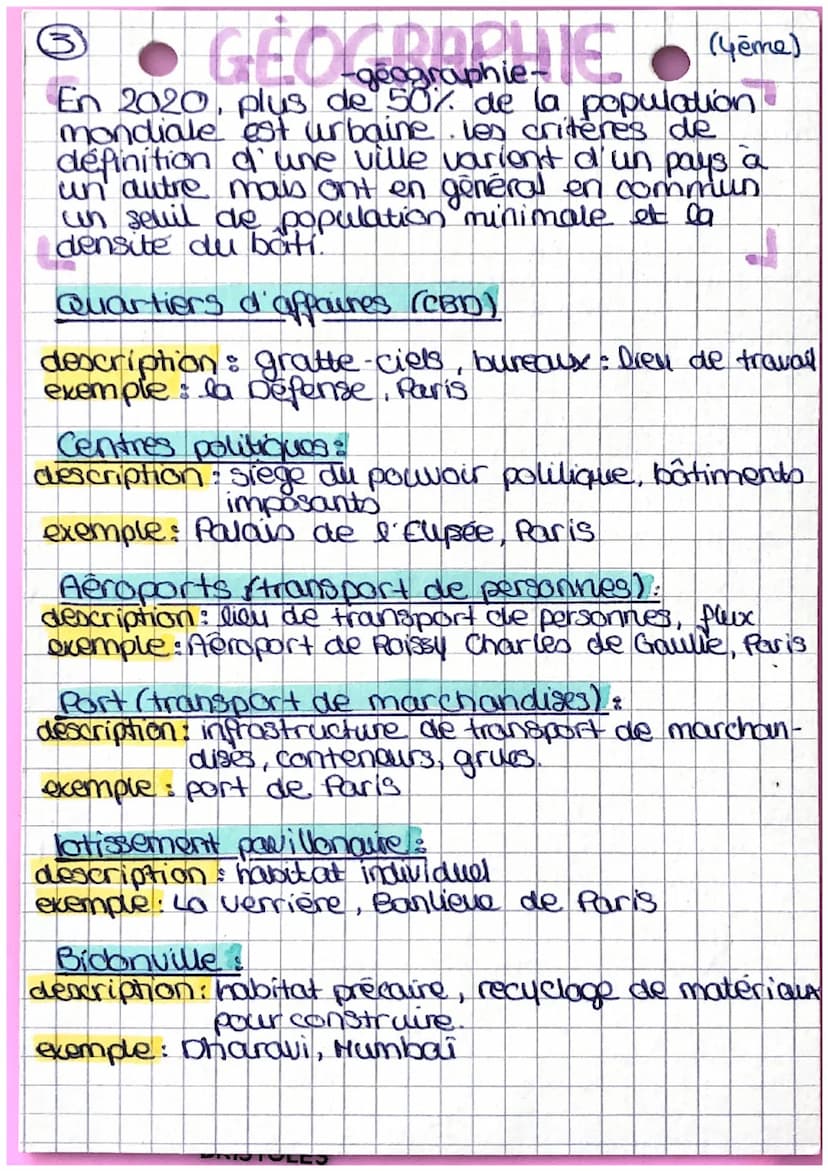 3
GÉOGRAPHIE
(4ēme)
-géographie-
En 2020, plus de 50% de la population
mondiale est urbaine. les critères de
définition d'une ville varient d'un pays à
un autre mais ont en général en commun
un seuil de population minimale et la
densité du bâti.
Quartiers d'affaires (CBD)
description : gratte-ciels, bureaux : lieu de travail
exemple : la Défense, Paris
Centres politiques :
description : siège du pouvoir polilique, bâtiments
imposants
exemple : Palais de l'Elysée, Paris
Aéroports (transport de personnes) :
description : lieu de transport de personnes, flux
exemple : Aéroport de Roissy Charles de Gaulle, Paris
Port (transport de marchandises) :
description : infrastructure de transport de marchan-
dises, conteneurs, grues.
exemple : port de Paris
lotissement pavillonaire :
description : habitat individuel
exemple : La verrière, Banlieue de Paris
Bidonville :
description : habitat précaire, recyclage de matériaux
pour construire.
exemple : Dharavi, Mumbaï